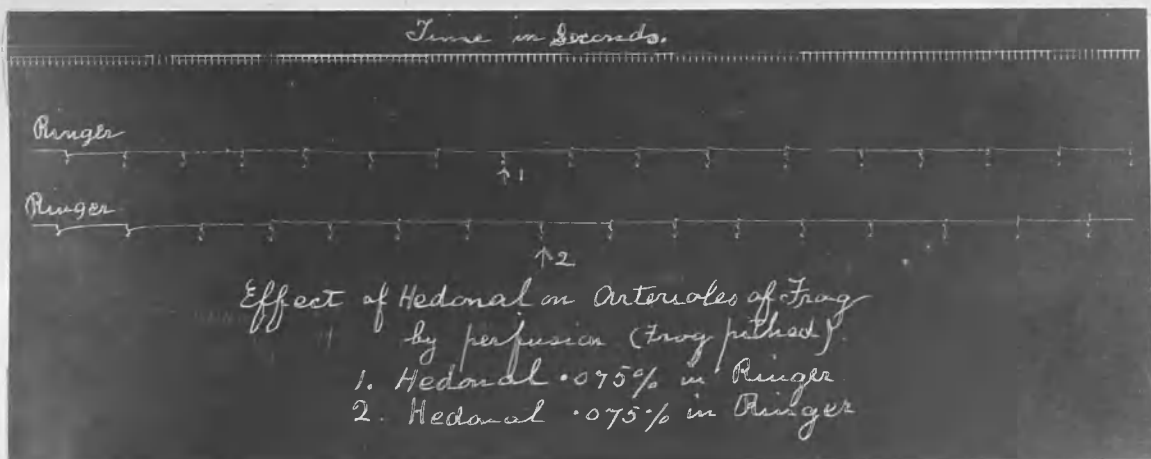 Time in Seconds.
Ringer
↑1
Ringer
↑2
Effect of Hedonal on Arterioles of Frog
by perfusion (Frog pithed).
1. Hedonal .075% in Ringer
2. Hedonal .075% in Ringer